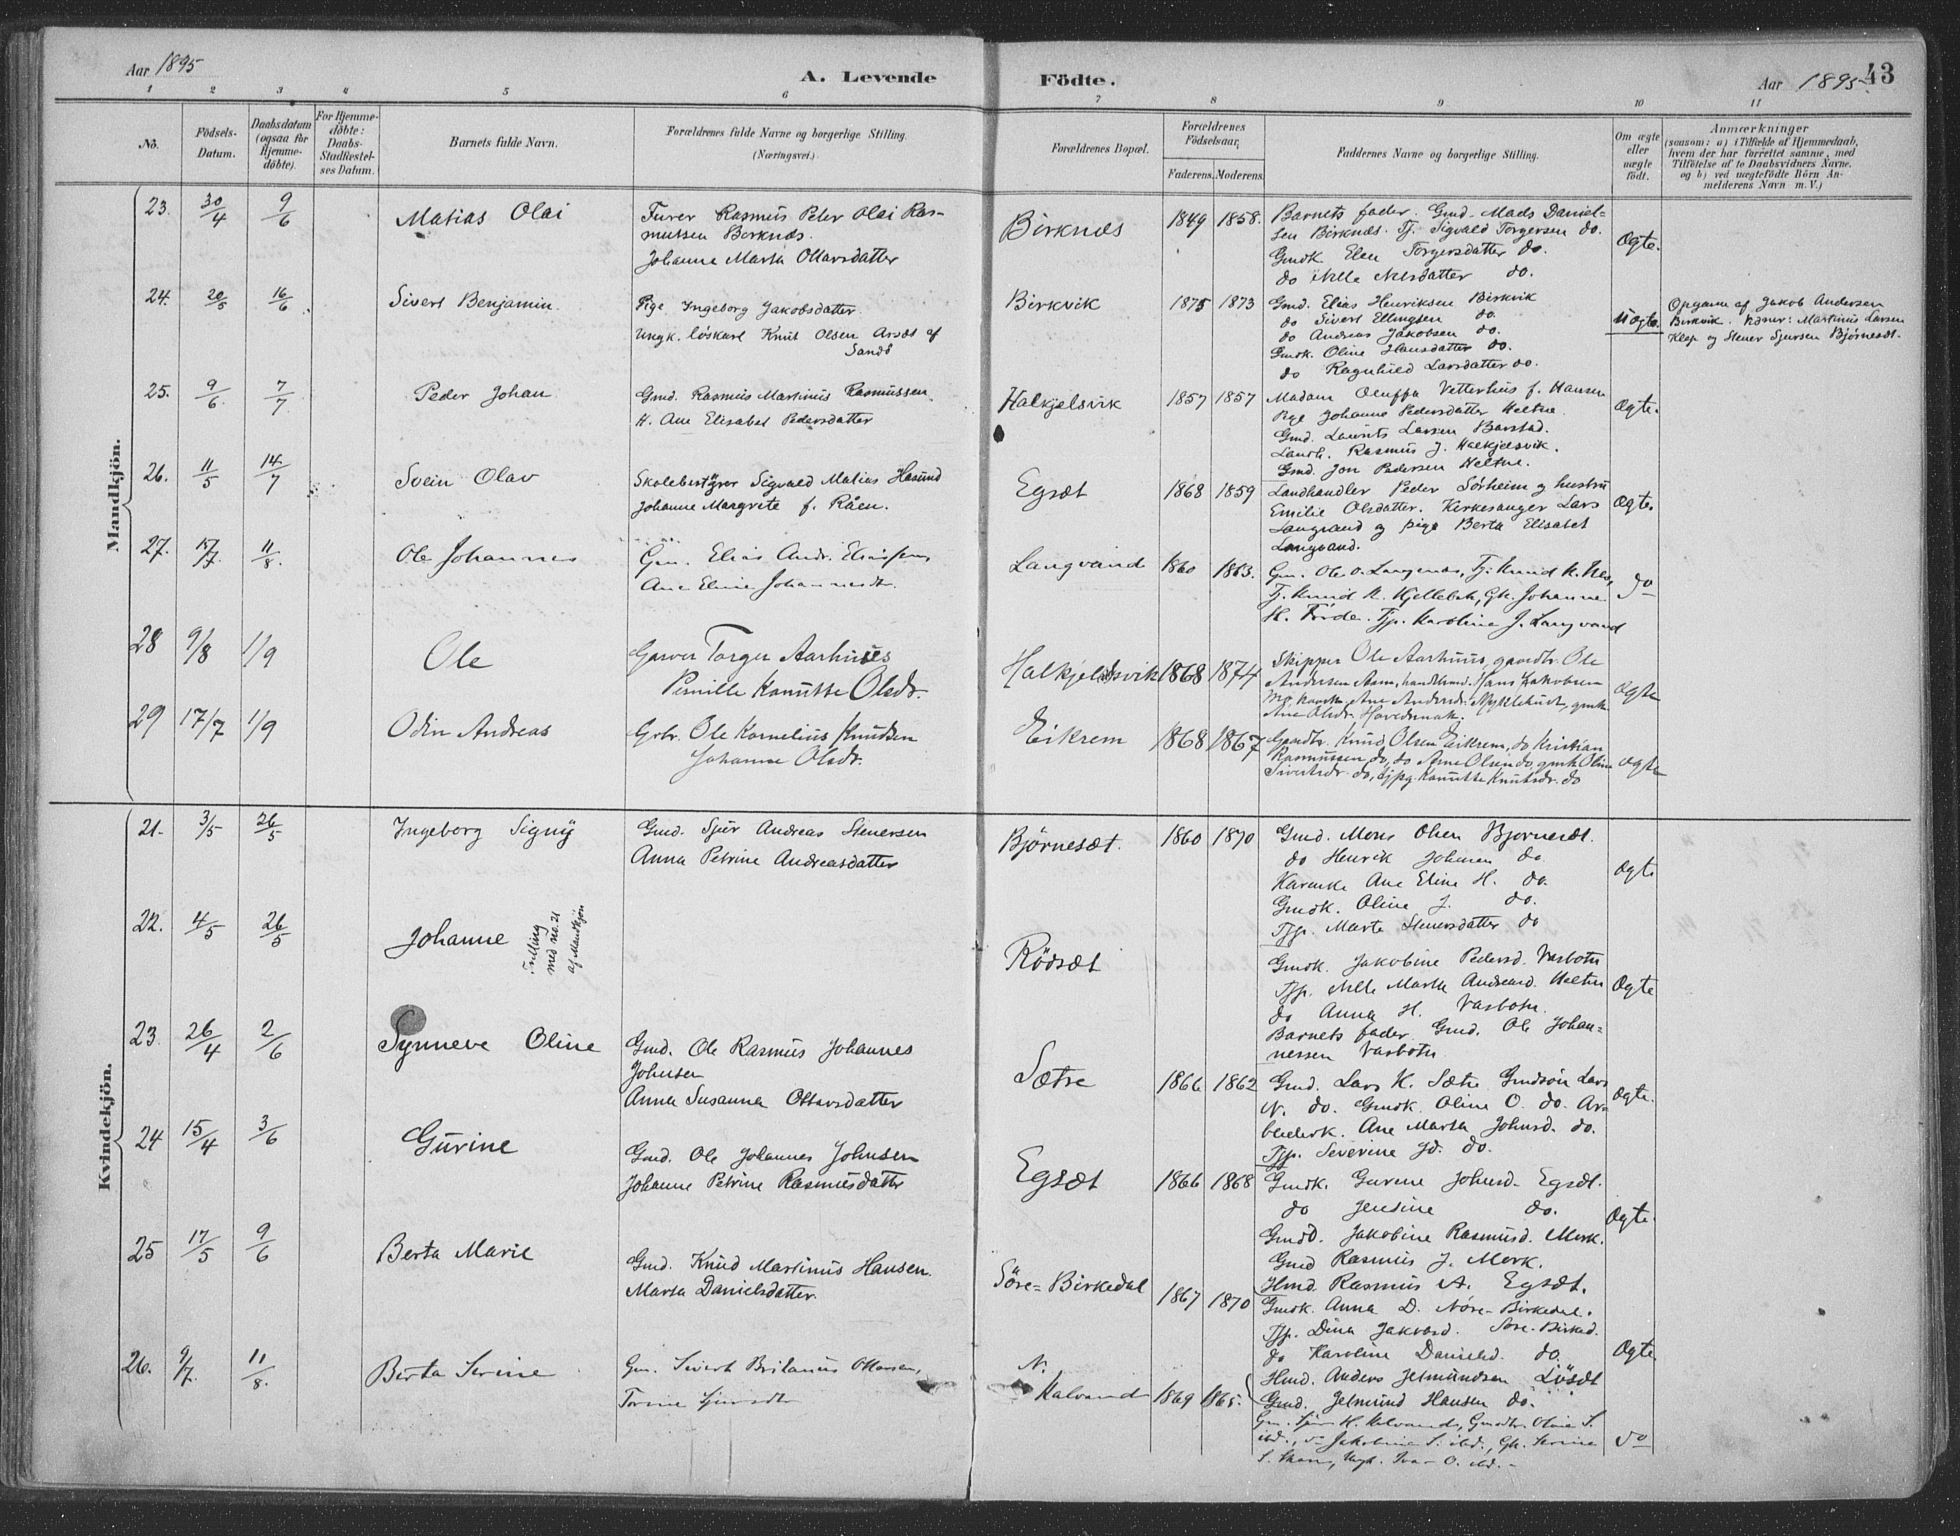 Aar 1895
A. Levende
Födte.
Aar 1895.
43
1 2 3 4 5 6 7 8 9 10 11
No.
Födsels-Datum.
Daabsdatum (ogsaa for Hjemmedöbte).
For Hjemmedöbte: Daabs-Stadfestelses Datum.
Barnets fulde Navn.
Forældrenes fulde Navne og borgerlige Stilling.
(Næringsvei.)
Forældrenes Bopæl.
Forældrenes Födselsaar,
Faderens. Moderens.
Faddernes Navne og borgerlige Stilling.
Om ægte eller uægte födt.
Anmærkninger
(saasom: a) i Tilfælde af Hjemmedaab,
hvem der har forrettet samme, med
Tilföielse af to Daabsvidners Navne.
og b) ved uægtefödte Börn An-
melderens Navn m. V.)
Mandkjön.
23. 30/4 9/6 Matias Olai
Furer Rasmus Peter Olai Ras-
mussen Birknæs.
Johanne Marta Ottarsdatter
Birknæs 1849 1858.
Barnets fader. Gmd. Mads Daniel-
sen Birknæs. Tj. Sigvald Torgersen do.
Gmdk. Elen Torgersdatter do.
do Nille Nilsdatter do.
Ægte.
24. 20/5 16/6 Sivert Benjamin
Pige Ingeborg Jakobsdatter
Ungk. löskarl Knut Olsen Arsæt af
Sandö
Birkvik 1875 1873
Gmd. Elias Henriksen Birkvik
do Sivert Ellingsen do.
do Andreas Jakobsen do.
Gmdk. Oline Hansdatter do.
do Ragnhild Larsdatter do.
Uægte.
Opgave af Jakob Andersen
Birkvik. Martinus Larsen
Klep og Stener Sjursen Bjørnesæt.
25. 9/6 7/7 Peder Johan
Gmd. Rasmus Martinus Rasmussen
H. Ane Elisabet Pedersdatter
Halkjelsvik 1857 1857
Madam Oluffa Vetterhus f. Hansen
Pige Johanne Pedersdatter Heltne.
Gmd. Laurits Larsen Barstad.
Landh. Rasmus J. Halkjelsvik.
Gmd. Jon Pedersen Heltne.
Ægte.
26. 11/5 14/7 Svein Olav
Skolebestyrer Sigvald Matias Hasund
Johanne Margrete f. Råen.
Egsæt 1868 1859
Landhandler Peder Sørheim og hustru
Emilie Olsdatter. Kirkesanger Lars
Langvand og pige Berta Elisabet
Langvand.
Ægte.
27. 17/7 11/8. Ole Johannes
Gm. Elias Andr. Eliassen,
Ane Eline Johannesdt.
Langvand 1860 1863.
Gm. Ole O. Langenæs, Tj. Knud K.
Tj. Knud K. Hjellebak, Gk. Johanne
H. Förde. Tjp. Karoline J. Langvand
do
28 9/8 1/9 Ole
Garver Torger Aarhuus
Pernille Knutte Olsdr.
Halkjelsvik 1868 1874
Skipper Ole Aarhuus, gaardbr. Ole
Andersen Aam, handlsmd. Hans Jakobsen
Ane Andersdr. Myklebust, gmk
Ane Olsdr. Hovedenak.
Ægte
29 17/7 1/9 Odin Andreas
Grbr. Ole Kornelius Knudsen
Johanne Olsdr.
Eikrem 1868 1867
Gaardbr. Knud Olsen Eikrem, do Kristian
Rasmussen do, do Arne Olsen do, gmk Oline
Sivertsdr. do, tjpg. Knutte Knutsdr. do
Ægte
Kvindekjön.
21. 3/5 26/5 Ingeborg Signy
Gmd. Sjur Andreas Stenersen
Anna Petrine Andreasdatter
Bjørnesæt. 1860 1870
Gmd. Mons Olsen Bjørnesæt.
do Henrik Johnsen do.
Karenke Ane Eline H. do.
Gmdk. Oline J. do.
Tjp. Marte Stenersdatter do
Ægte
22. 4/5 26/5 Johanne
Tvilling
med no. 21
af Mandkjøn
Rödsæt
Gmdk. Jakobine Pedersd. Vasbotn
Tjp. Nille Marta Andreasd. Heltne
do Anna H. Vasbotn.
Barnets fader. Gmd. Ole Johan-
nessen Vasbotn
Ægte
23 26/4 2/6 Synneve Oline
Gmd. Ole Rasmus Johannes
Johnsen
Anna Susanna Ottarsdatter
Sætre 1866 1862
Gmd. Lars K. Sætre Gmdsön Lars
N. do. Gmdk. Oline O. do. Ar-
beiderk. Ane Marta Johnsd. do.
Tjp. Severine Jd. do.
Ægte.
24 15/4 3/6 Gurine
Gmd. Ole Johannes Johnsen
Johanne Petrine Rasmusdatter
Egsæt 1866 1868
Gmdk. Gurine Johnsd. Egsæt.
do Jensine do.
Gmdd. Jakobine Rasmusd. Mork.
Gmd Rasmus J. Mork.
Hmd Rasmus A. Egsæt.
Ægte.
25 17/5 9/6 Berta Marie
Gmd. Knud Martinus Hansen.
Marta Danielsdatter
Søre-Birkedal 1867 1870
Gmdk. Anna D. Nöre-Birkedal.
Tjp. Dina Jakobsd. Søre-Birked.
do Karoline Danielsd. do.
Hmd. Anders Jetmundsen Lösæt
Gmd. Jetmund Hansen do.
Ægte.
26. 9/7. 11/8. Berta Serine
Gm. Sivert Britanus Ottersen,
Torine Sjursdt
N.
Kalvand 1869 1865.
Gm. Sjur H. Kalvand, Gmdtr. Oline S.
ibd., do Jakobine S. ibd., Gk. Serine
S. Skare, Ungk. Ivar O. ibd. -
do